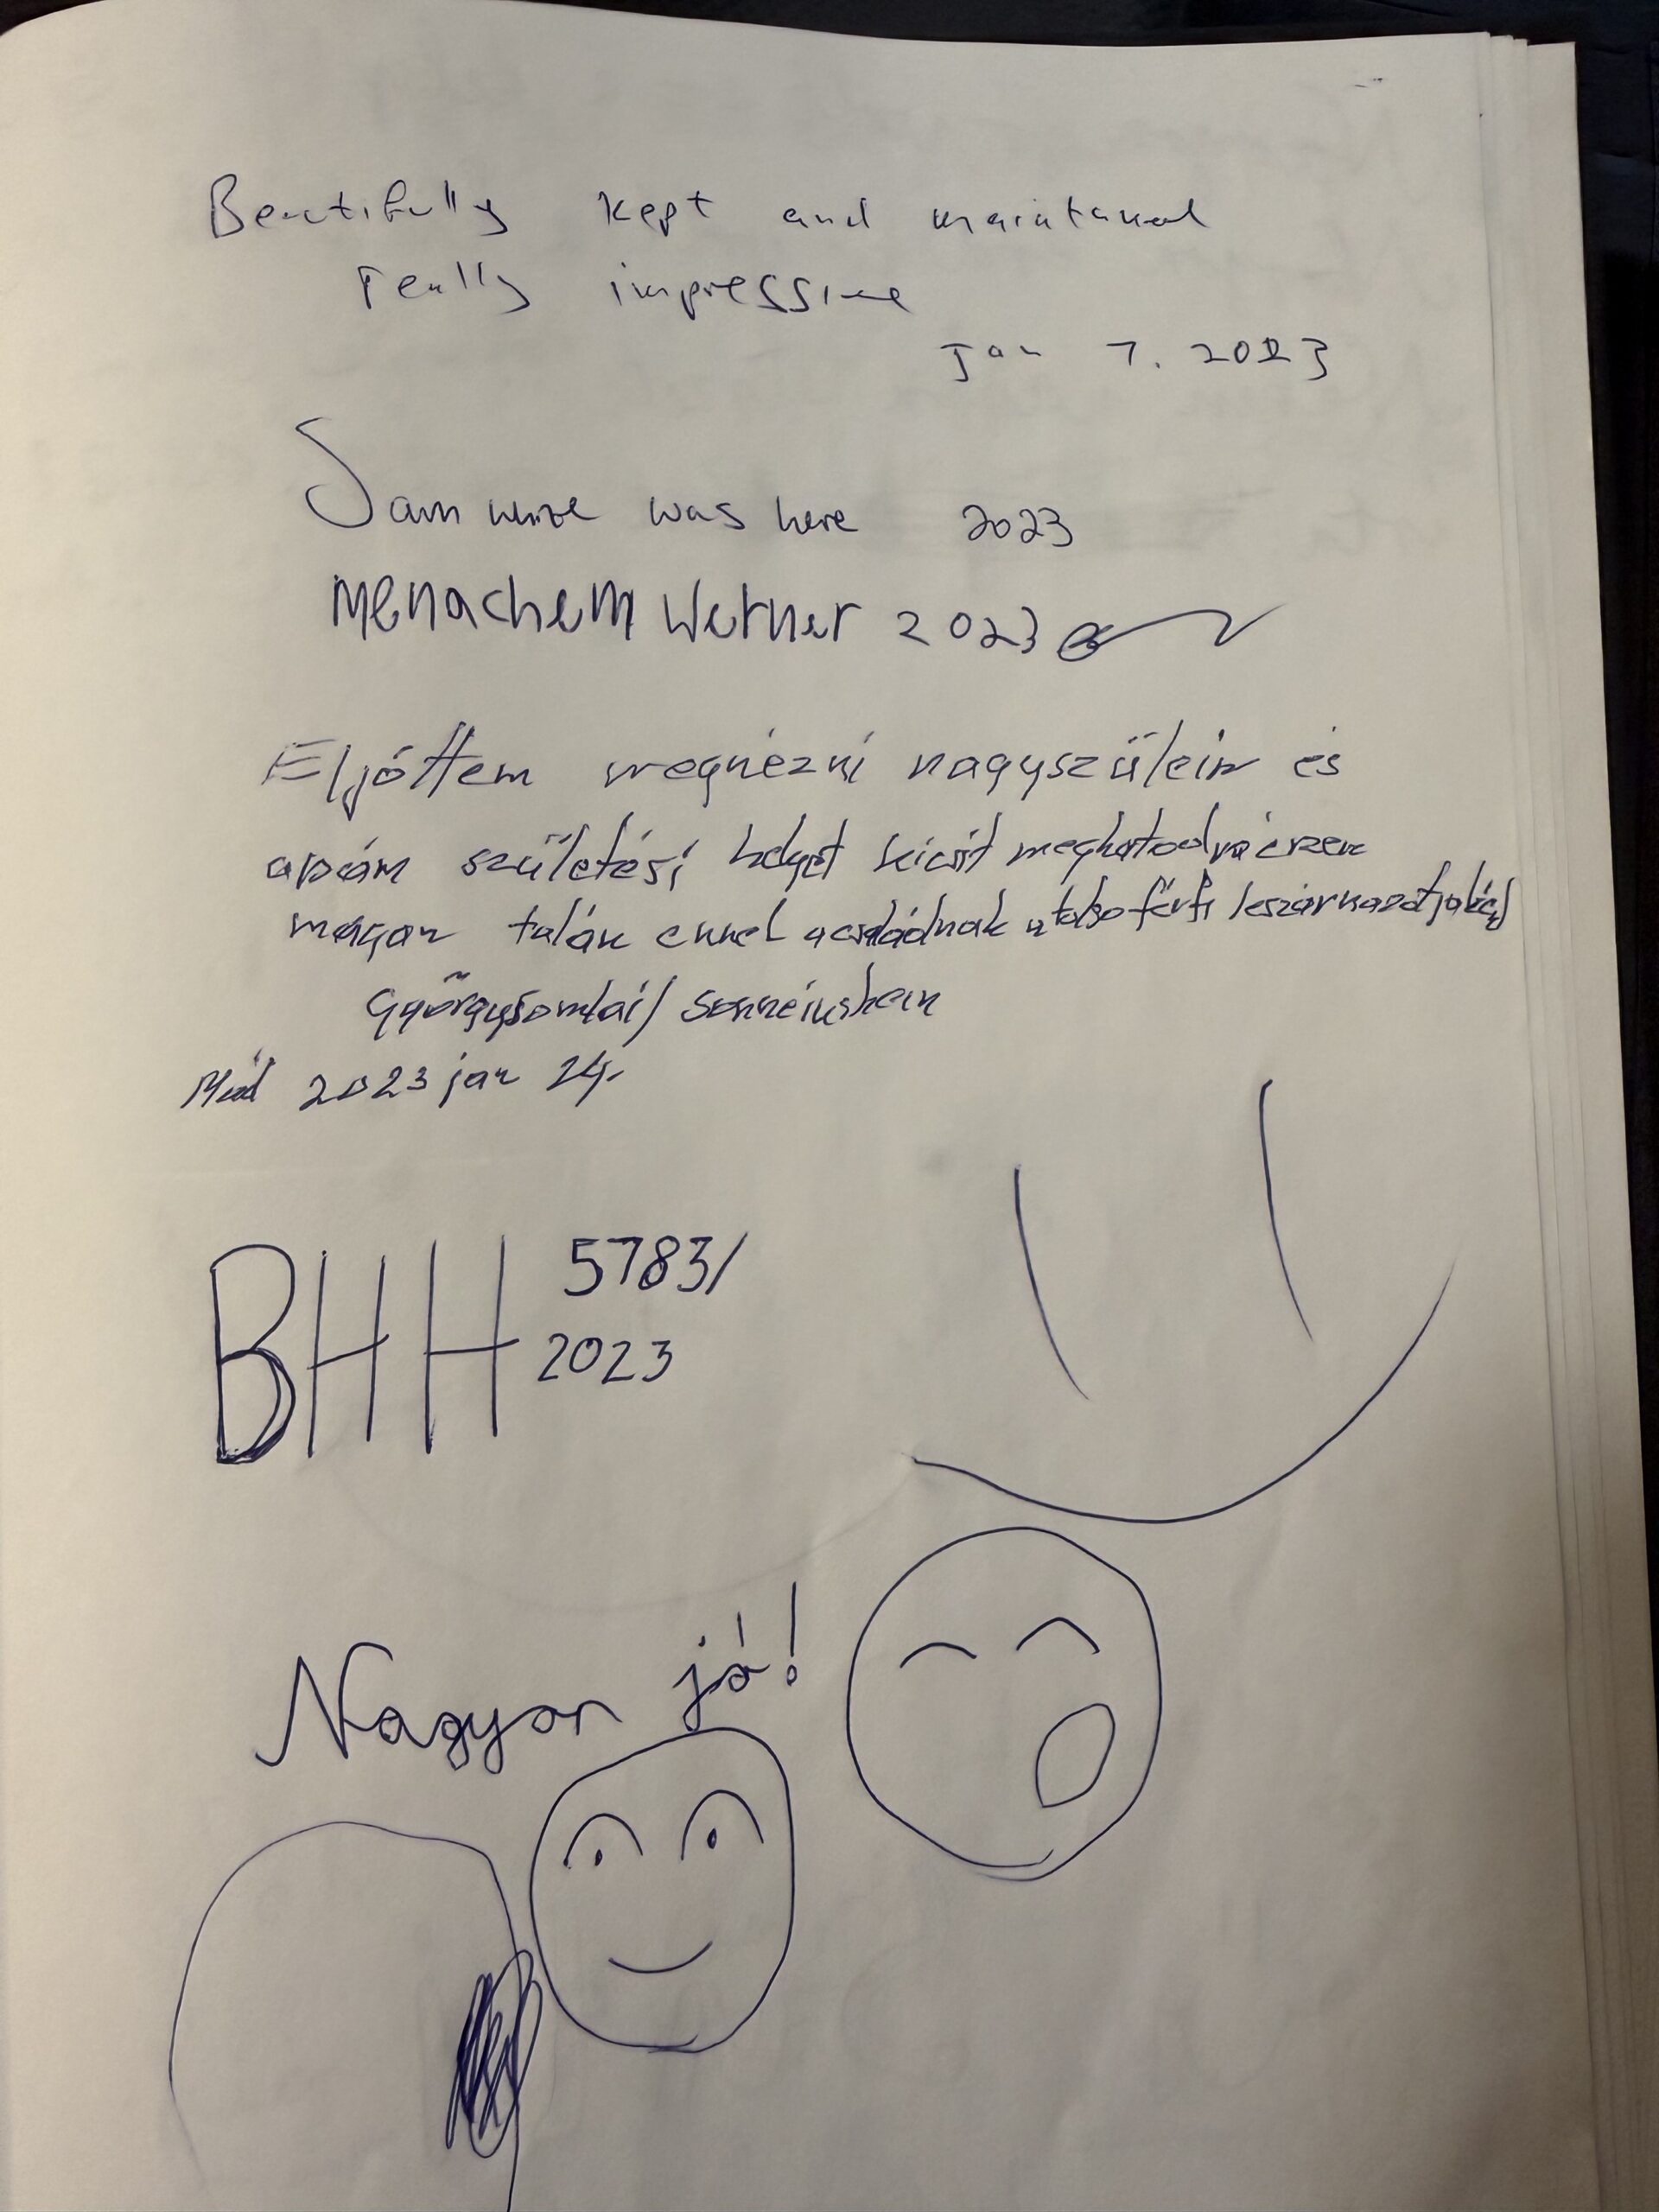 Beautifully kept and maintained
really impressive
Jan 7. 2023
Sam was here 2023
Menachem Werner 2023
Eljöttem megnézni nagyszüleim és
apám születési helyét kicsit meghatodva érzem
magam talán ennek a családnak utolso férfi leszármazotjakén
György Somlai /
Mád 2023 jan 24.
BHH 5783/
2023
Nagyon jó!